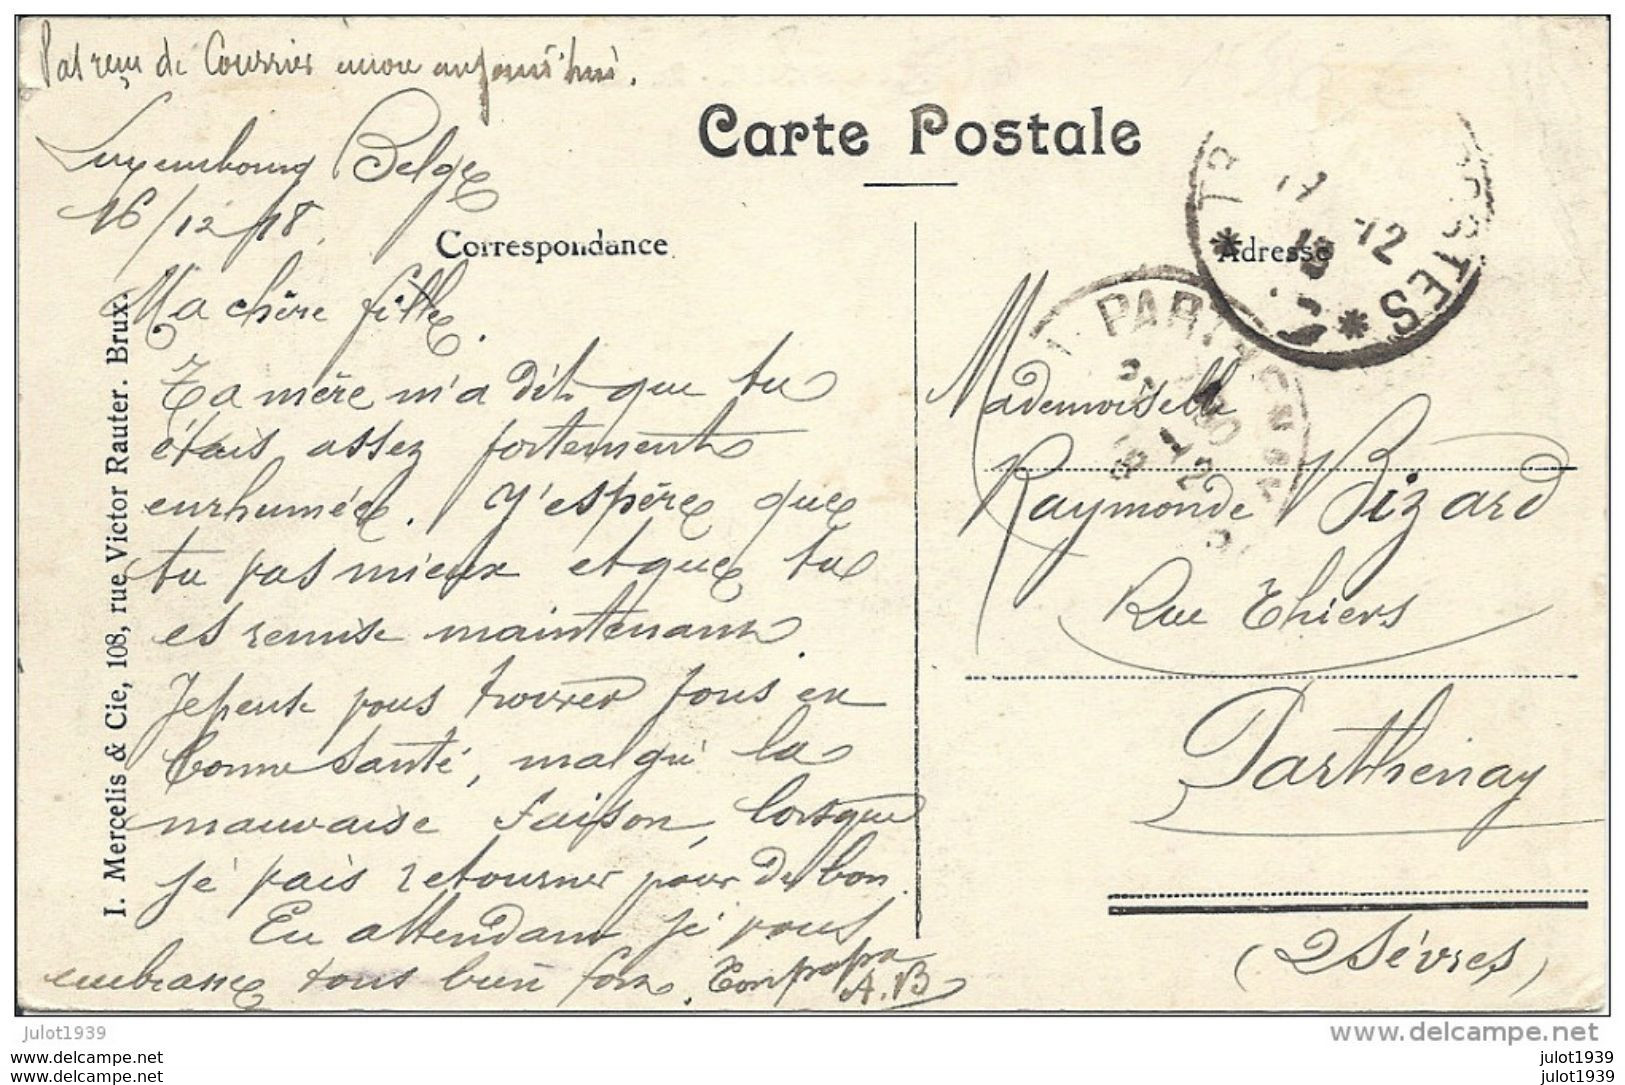 Pas reçu de Courrier encore aujourd'hui.
Carte Postale
Luxembourg Belge
16/12/18.
Correspondance
Adresse
Ma chère fille.
Ta mère m'a dit que tu
étais assez fortement
enrhumée. J'espère que
tu vas mieux et que tu
es remise maintenant.
Je peux vous trouver tous en
bonne santé, malgré la
mauvaise saison, lorsque
je vais retourner pour de bon.
En attendant je vous
embrasse tous bien fort. Ton papa
A. B
Mademoiselle
Raymonde Bizard
Rue Thiers
Parthenay
(2 Sèvres)
I. Mercelis & Cie, 108, rue Victor Rauter. Brux.
* TR POSTES *
17 -12
18
PARTHENAY
12
18
julot1939
delcampe.net
www.delcampe.net
www.delcampe.net
julot1939
julot1939